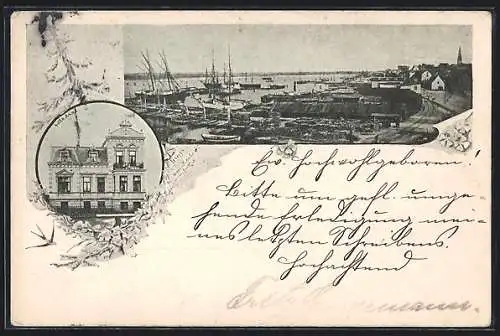 Ew. Hochwohlgeboren!
Bitte um gefl. umge-
hende Erledigung mei-
nes letzten Schreibens.
Hochachtend